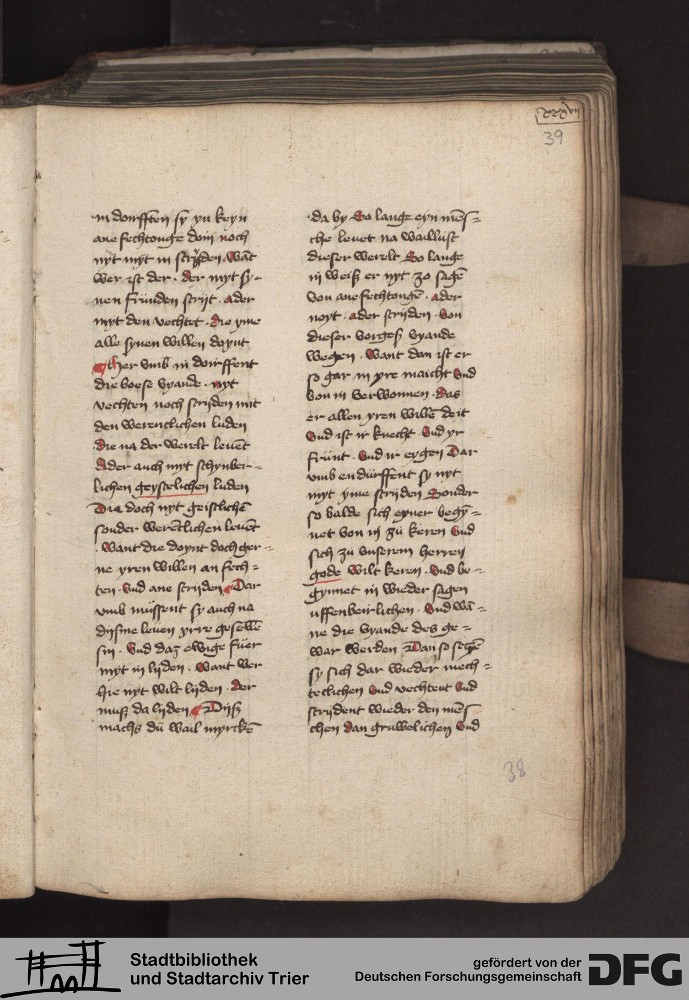 xxxviij
39
in dorrfften sy yn keyn
ane fechtonge doin noch
nyt myt in strijden. Want
wer ist der. der myt sy-
nen frunden strijt. ader
myt den vechtet. die yme
alle synen willen doynt
Her vmb in dorffent
die boese vyande. nyt
vechten noch strijden mit
den werentlichen luden
die na der werelt leuēt
Ader auch myt schynber-
lichen geystelichen luden
Die doch nyt geistlichē
sonder werētlichen leuēt
. Want die doynt doch ger-
ne yren willen an fech-
ten. vnd ane strijden Dar
vmb müssent sy auch na
dijsme leuen yrre geselle
sin. Vnd daz ewige füer
myt in lijden. Want wer
hie nyt wilt lijden. der
muß da lijden Dijß
machs dü wail myrckē
da by So lange eyn mēs-
che leuet na wallust
dieser werelt So lange
in weiß er nyt zo sagē
von anefechtongē. ader
noyt. ader strijden. von
dieser vorges vyande
wegen. Want dan ist er
so gar in yre maicht vnd
von in verwonnen. das
er allen yren willē deit
vnd ist ir knecht vnd yr
frünt. vnd ir eygen Dar
vmb en dürffent sy nyt
myt yme strijden Sonder
so balde sich eyner begȳ-
net von in zü keren vnd
sich zü vnserem herren
gode wilt keren. vnd be-
gynnet in wieder sagen
uffenberlichen. vnd wā-
ne die vyande des ge-
war werden Dan so seczē
sy sich dar wieder mech-
teclichen vnd vechtent vnd
strijdent wieder den mēs
chen dan gruwelichen vnd
38
Stadtbibliothek
und Stadtarchiv Trier
gefördert von der
Deutschen Forschungsgemeinschaft
DFG